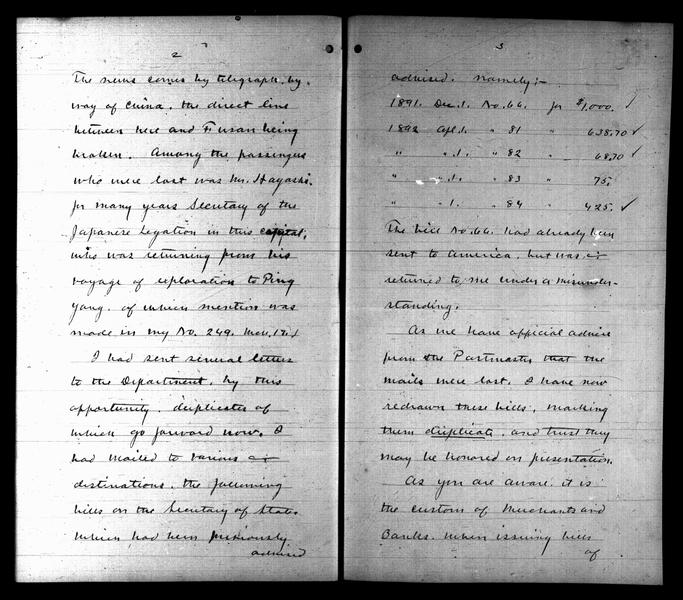 2
The news comes by telegraph, by.
way of China, the direct line
between here and Fusan being
broken. Among the passengers
who were lost was Mr. Hayashi.
for many years Secretary of the
Japanese Legation in this capital,
who was returning from his
voyage of exploration to Ping
Yang. of which mention was
made in my No. 249. Nov. 17.
I had sent several letters
to the Department, by this
opportunity. duplicates of
which go forward now. I
had mailed to various
destinations, the following
bills on the Secretary of State.
which had been previously
advised
3
advised. namely;-
1891. Dec. 1. No. 66. for $1,000. ✓
1892 Apl. 1. " 81 " 638.70 ✓
" " 1. " 82 " 68.70 ✓
" " 1. " 83 " 75.
" " 1. " 84 " 425. ✓
The bill No. 66. had already been
sent to America, but was
returned to me under a misunder-
standing.
As we have official advice
from the Postmaster that the
mails were lost. I have now
redrawn these bills, marking
them duplicate, and trust they
may be honored on presentation.
As you are aware, it is
the custom of Merchants and
Banks. when issuing bills
of